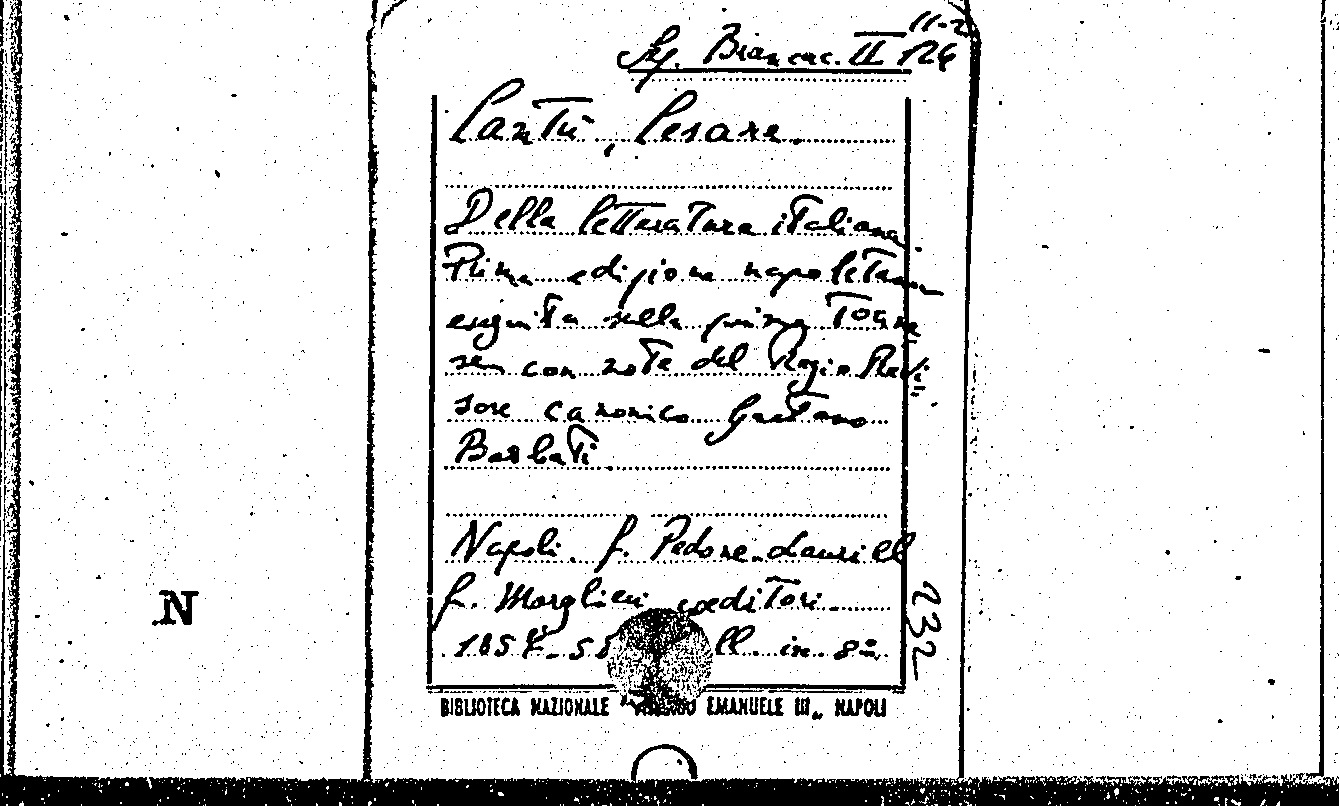 11-2
Sg. Biancac. II 126
Cantù, Cesare.
Della letteratura italiana.
Prima edizione napoletana
eseguita sulla prima Torine
se con note del Regio Revi
sore canonico Gaetano
Barbati.
Napoli. F. Pedone-Lauriell
F. Marghieri coeditori.
1857-58 ll. in 8º
232
N
BIBLIOTECA NAZIONALE EMANUELE III„ NAPOLI